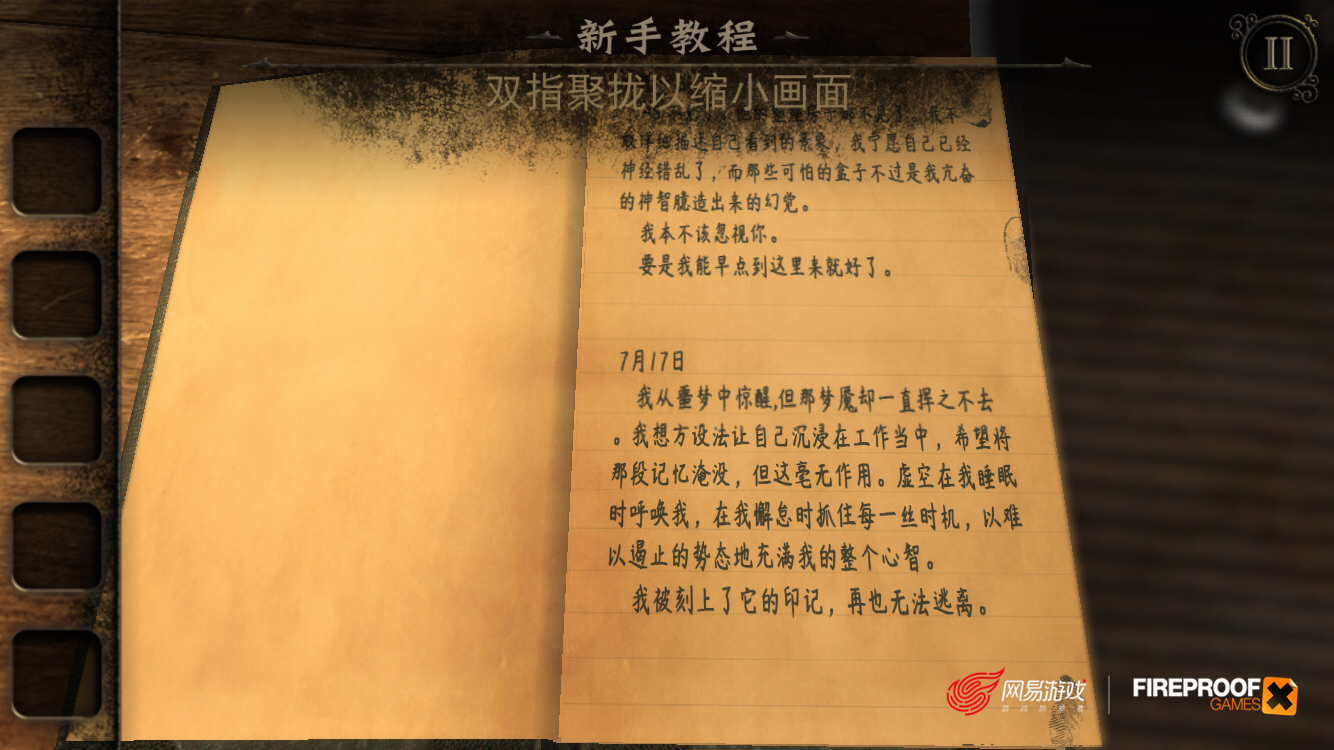 新手教程
双指聚拢以缩小画面
II
敢详细描述自己看到的景象，我宁愿自己已经
神经错乱了，而那些可怕的盒子不过是我亢奋
的神智臆造出来的幻觉。
我本不该忽视你。
要是我能早点到这里来就好了。
7月17日
我从噩梦中惊醒,但那梦魇却一直挥之不去
。我想方设法让自己沉浸在工作当中，希望将
那段记忆淹没，但这毫无作用。虚空在我睡眠
时呼唤我，在我懈怠时抓住每一丝时机，以难
以遏止的势态地充满我的整个心智。
我被刻上了它的印记，再也无法逃离。
网易游戏
游戏热爱者
FIREPROOF
GAMES